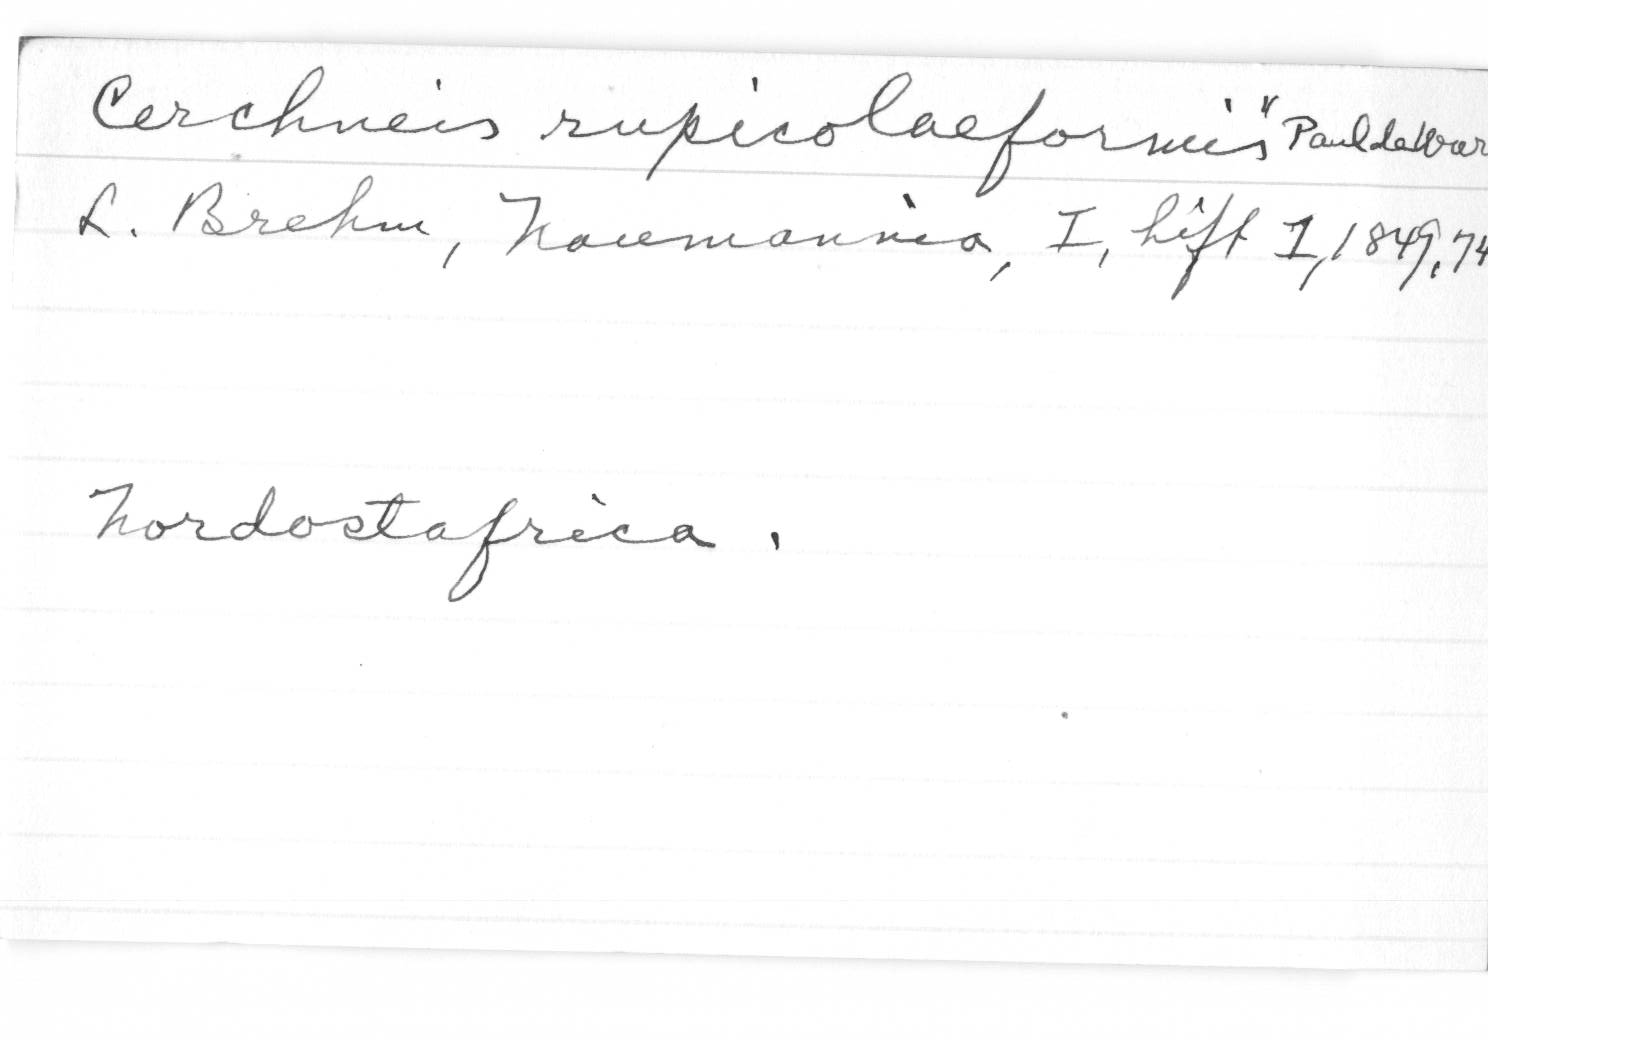 Cerchneis rupicolaeformis "Paul de War
L. Brehm, Naumannia, I, hift 1, 1849, 74
Nordostafrica.